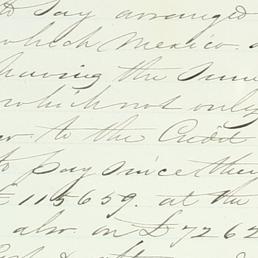 to say arranged
which Mexico
having the same
which not only
to the Credit
to pay since they
£115659. at the
also on £7262